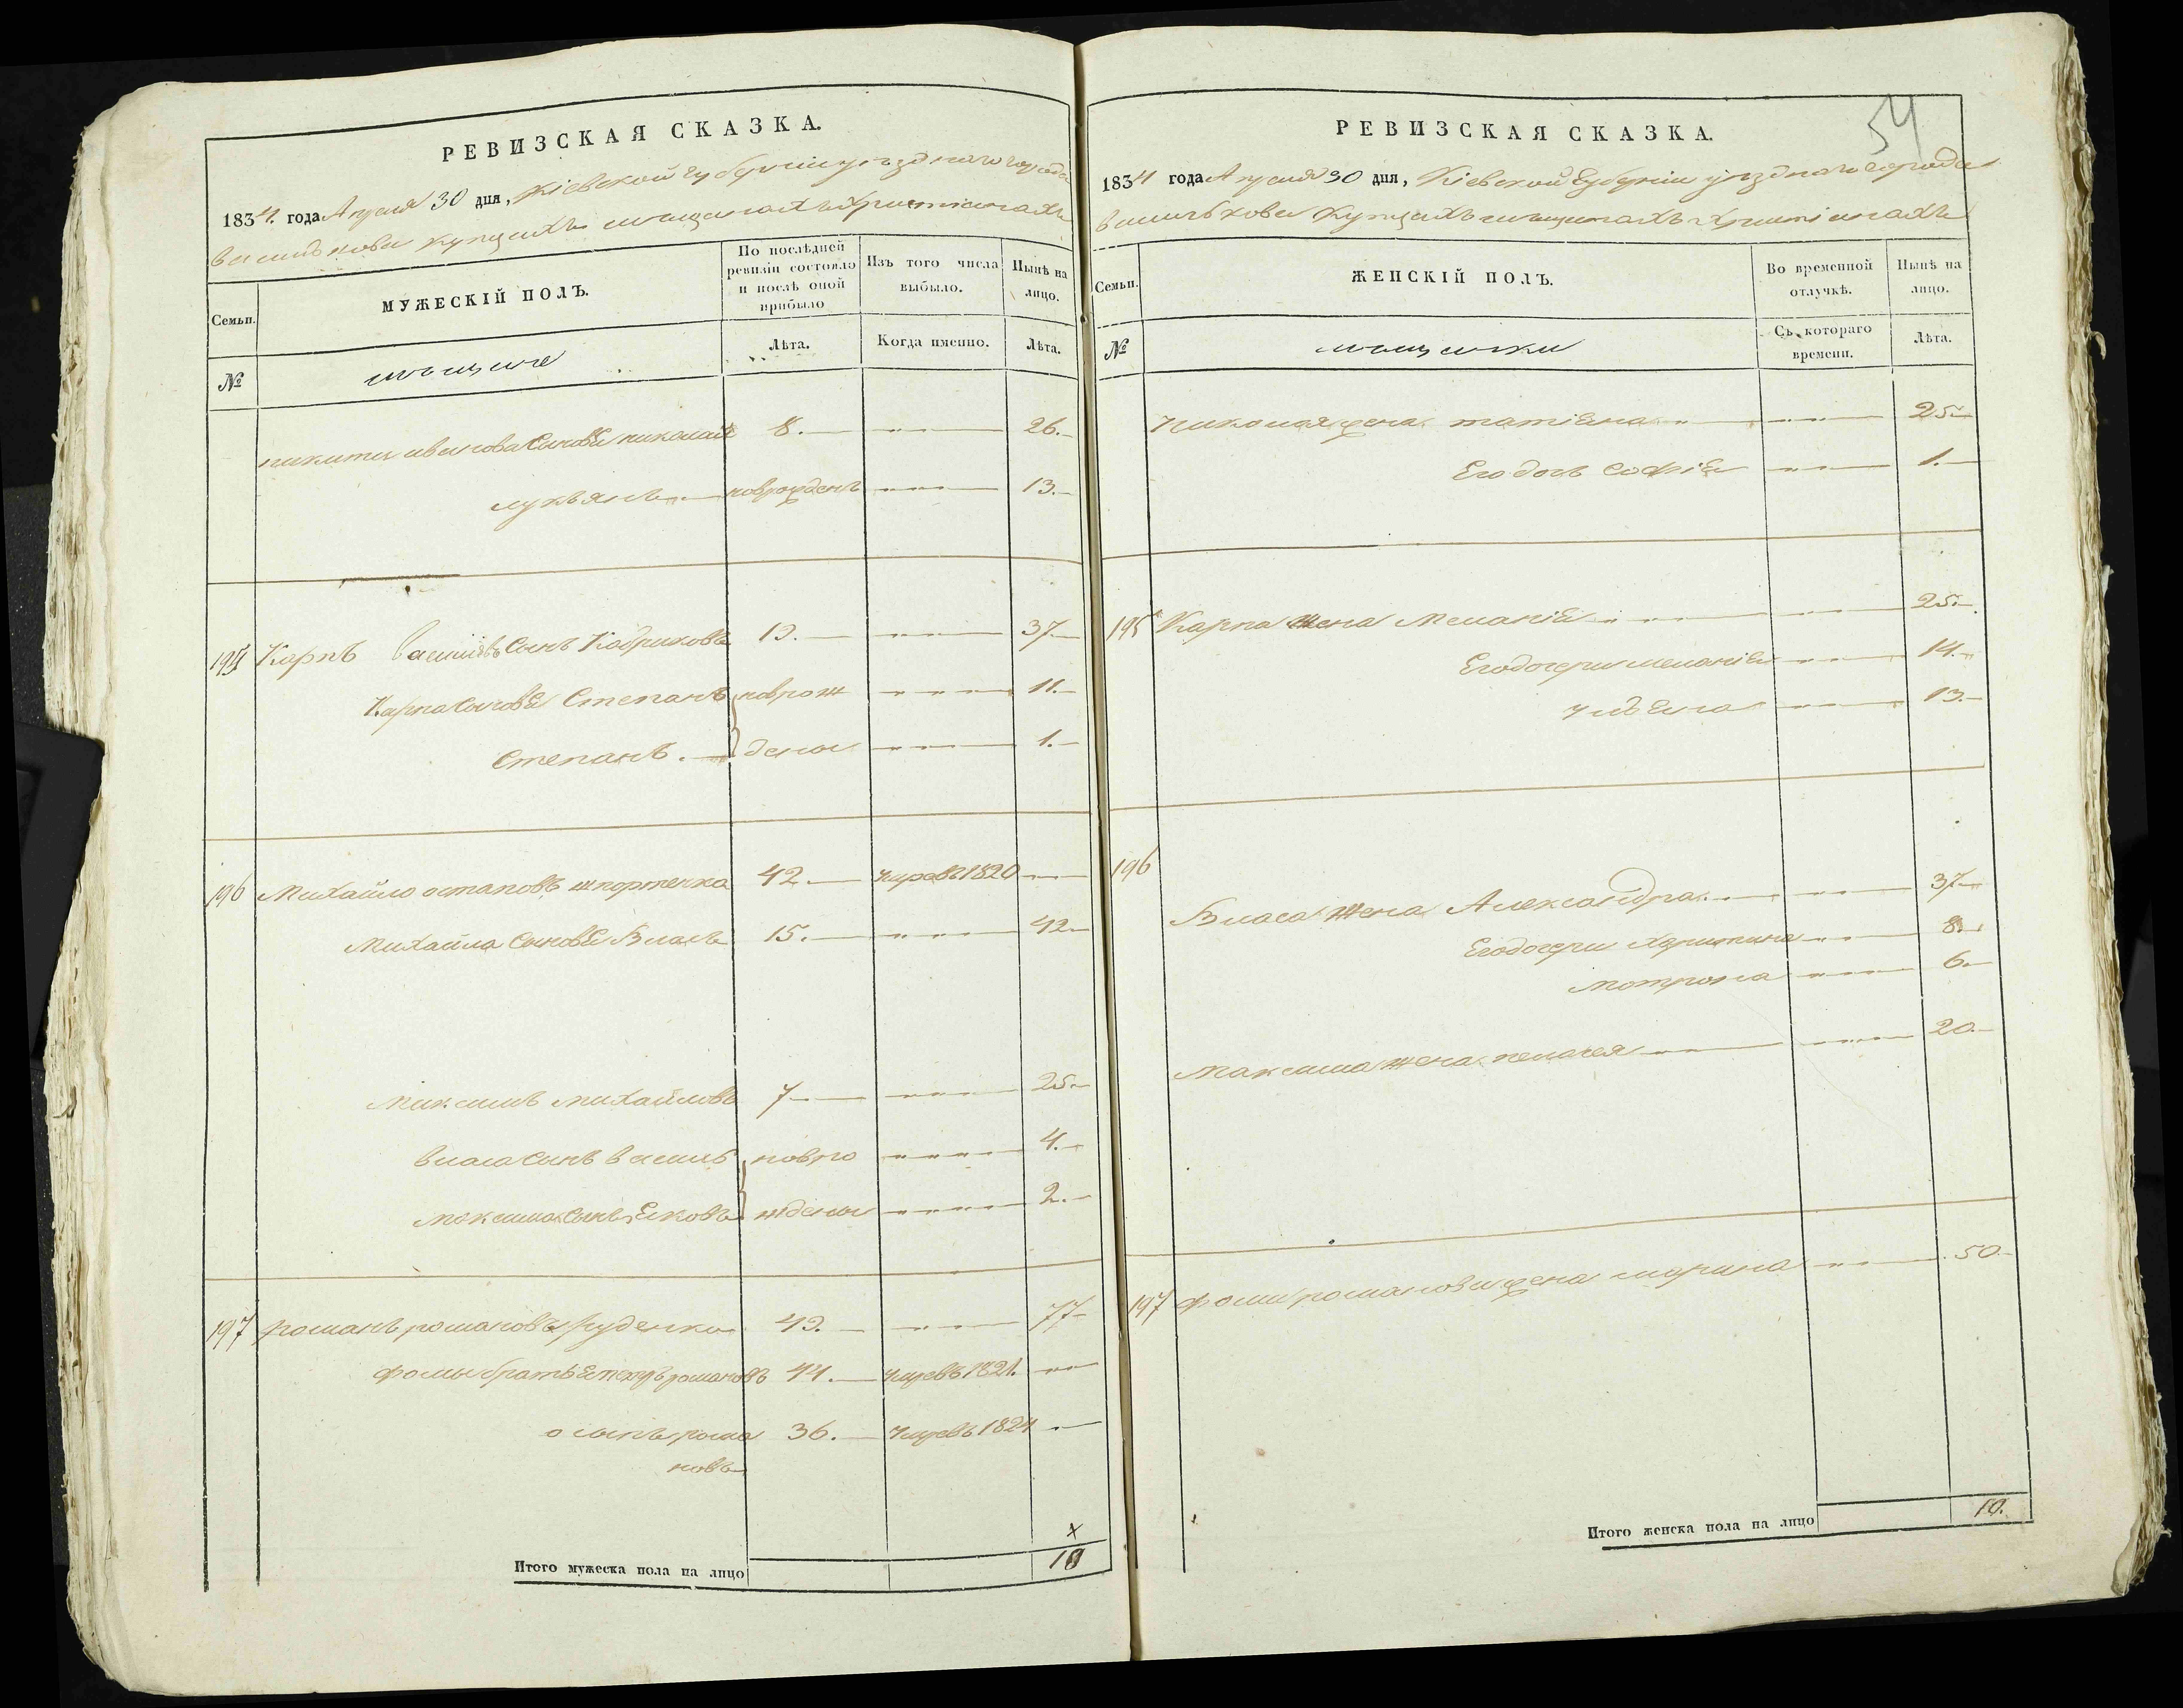 РЕВИЗСКАЯ СКАЗКА.
1834. года Апреля 30 дня, Кіевской Губерніи уѣзднаго города
Василькова Купцахъ мѣщанахъ Христіанахъ
Семьи.
МУЖЕСКІЙ ПОЛЪ.
По послѣдней ревизіи состояло и послѣ оной прибыло
Изъ того числа выбыло.
Нынѣ на лицо.
№
мѣщане
Лѣта.
Когда именно.
Лѣта.
никиты иванова Сыновья николай 8. 26.
лукьянъ новрожденъ 13.
195 Карпъ Васильевъ Сынъ 19. 37
Карпа Сыновья Степанъ новрож 11.
Степанъ. дены 1.
196 Михайло остаповъ шпортенко 42. умре въ 1820
Михайла Сыновья Власъ 15. 42
Максимъ Михайловъ 7 25.
власа Сынъ василь новро 4.
Максима Сынъ Яковъ ждены 2.
197 романъ романовъ Руденко 49. 77
фомы братья романовъ 44. умре въ 1821.
осипъ рома 36. умре въ 1824
новъ
Итого мужеска пола на лицо 10
РЕВИЗСКАЯ СКАЗКА.
54
1834 года Апреля 30 дня, Кіевской Губерніи уѣзднаго города
Василькова Купцахъ мѣщанахъ Христіанахъ
Семьи.
ЖЕНСКІЙ ПОЛЪ.
Во временной отлучкѣ.
Нынѣ на лицо.
№
мѣщанки
Съ котораго времени.
Лѣта.
Николая жена татіяна 25
Его дочь Софія 1.
195 Карпа Жена Меланія 25.
Его дочери меланія 14.
ульяна 13.
196
Власа Жена Александра 37
Его дочери Харитина 8.
мотрона 6.
Максима жена пелагея 20.
197 фомы романова жена марина 50.
Итого женска пола на лицо 10.